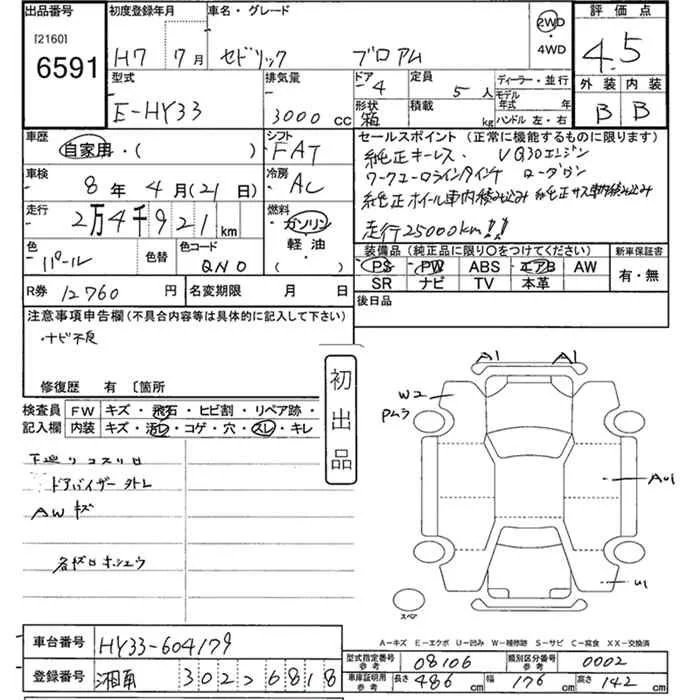 出品番号 初度登録年月 車名・グレード 評価点
[2160] 6591 H7 7月 セドリック ブロアム 2WD ・ 4WD 4.5
型式 排気量 ドア 4 定員 5人 ディーラー・並行 外装 内装
E-HY33 3000cc 形状 箱 積載 kg モデル年式 年 ハンドル 左・右 B B
車歴 シフト セールスポイント (正常に機能するものに限ります)
自家用・( ) FAT 純正キーレス、VQ30エンジン
車検 冷房
8年4月(21日) AC 純正ホイール車内積み込み
走行 燃料
2万4千921km ガソリン 走行25000km!!
色 色替 色コード 軽油 装備品(純正品に限り○をつけてください) 新車保証書
パール QN0 ( ) PS PW ABS エアB AW 有・無
R券 12760円 名変期限 月 日 SR ナビ TV 本革
注意事項申告欄(不具合内容等は具体的に記入して下さい) 後日品
・ナビ不良
修復歴 有 〔箇所 初出品
検査員 FW キズ・飛石・ヒビ割・リペア跡・
記入欄 内装 キズ・汚レ・コゲ・穴・スレ・キレ
ドアバイザー外レ
AWキズ
A1 A1
W2
AU1
U1
スペア
A-キズ E-エクボ U-凹み W-補修跡 S-サビ C-腐食 XX-交換済
車台番号 HY33-604179
型式指定番号 参考 08106 類別区分番号 参考 0002
登録番号 湘南 302 6818
車庫証明用 参考 長さ 486cm 幅 176cm 高さ 142cm